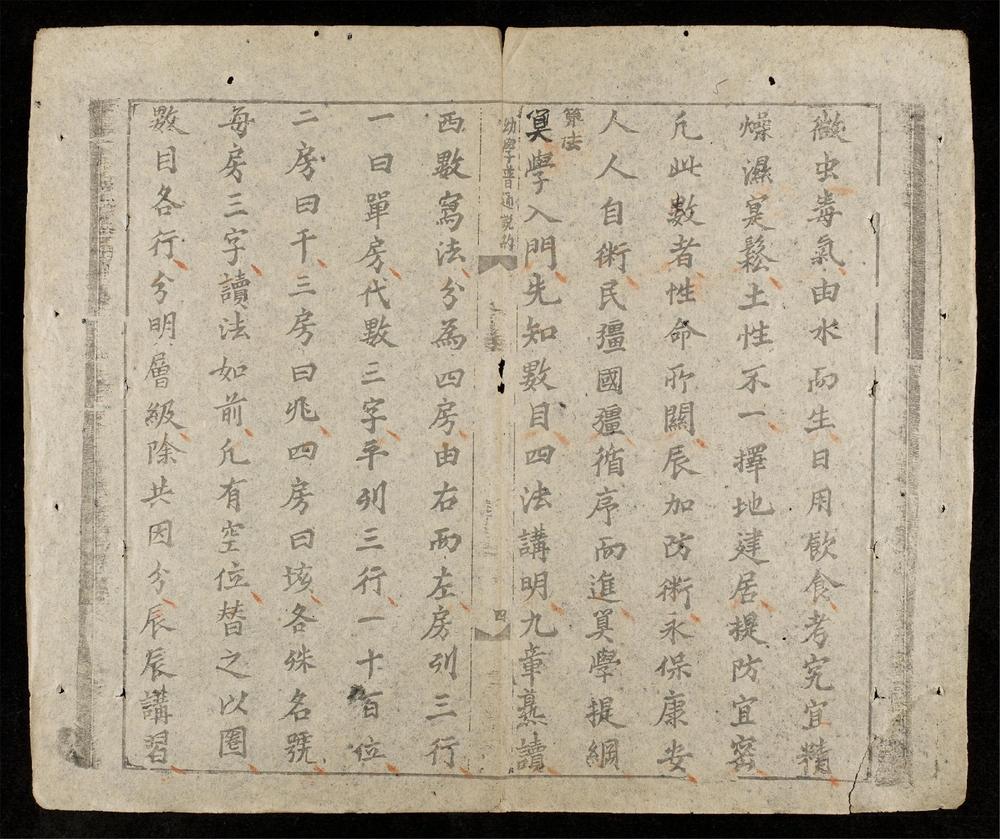 微虫毒氣由水而生日用飲食考究宜精
燥濕寔鬆土性不一擇地建居提防宜密
凢此數者性命所關辰加防術永保康安
人人自術民彊國彊循序而進筭學提綱
筭法
筭學入門先知數目四法講明九章熟讀
幼學普通說約
四
西數寫法分為四房由右而左房列三行
一曰單房代數三字平列三行一十百位
二房曰千三房曰兆四房曰垓各殊名號
每房三字讀法如前凢有空位替之以圈
數目各行分明層級除共因分辰辰講習